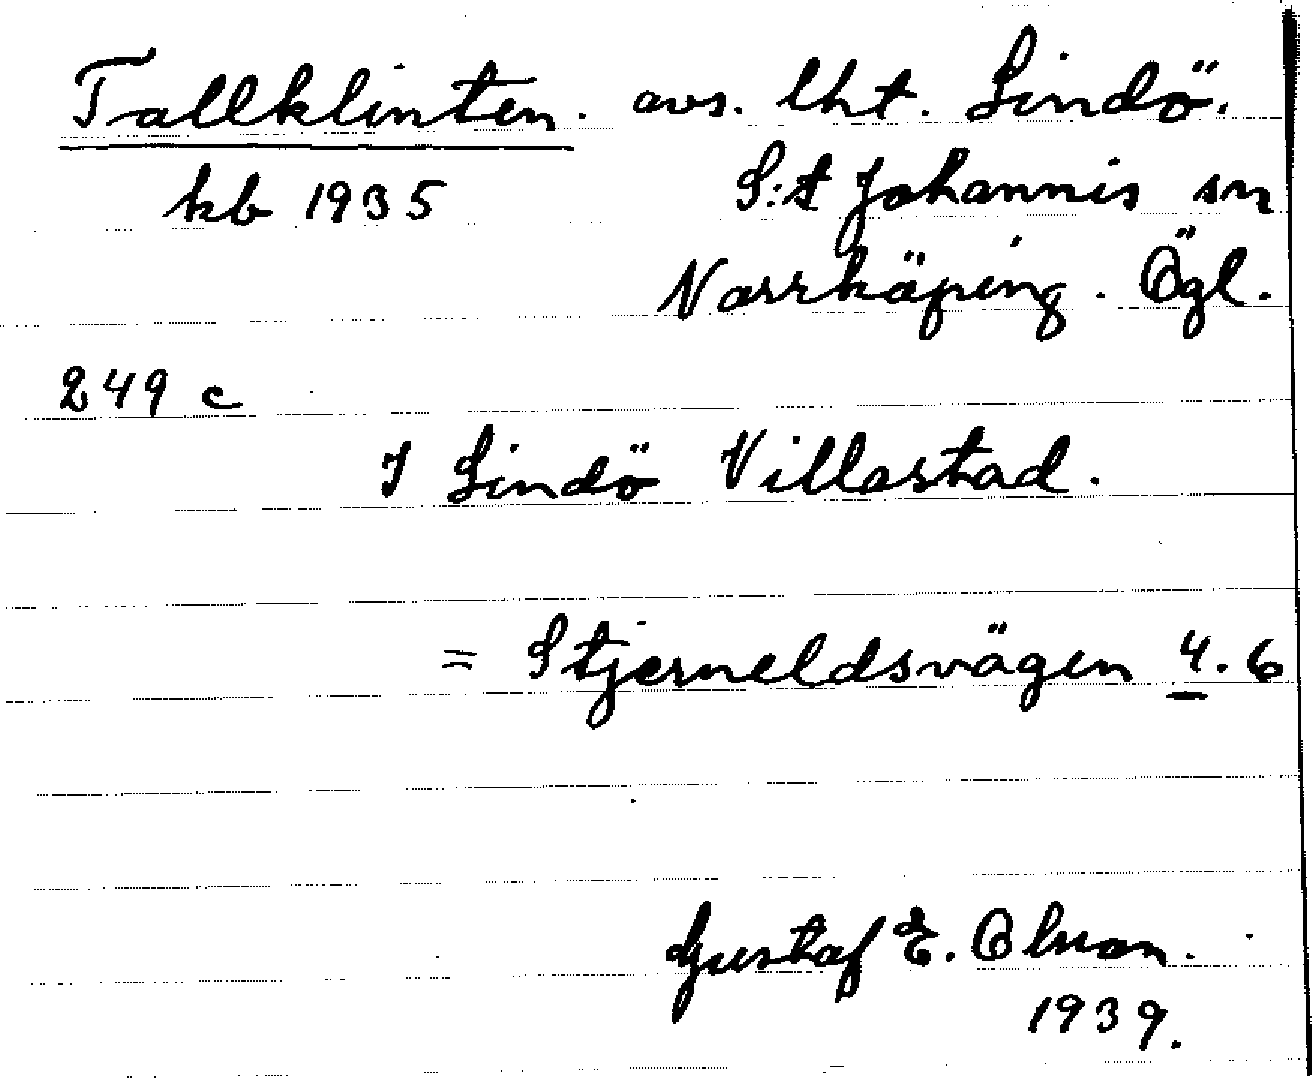 Tallklinten. avs. lht. Lindö.
kb 1935 S:t Johannis sn
Norrköping. Ögl.
249 c
I Lindö Villastad.
= Stjerneldsvägen 4. 6
Gustaf E. Olsson.
1939.